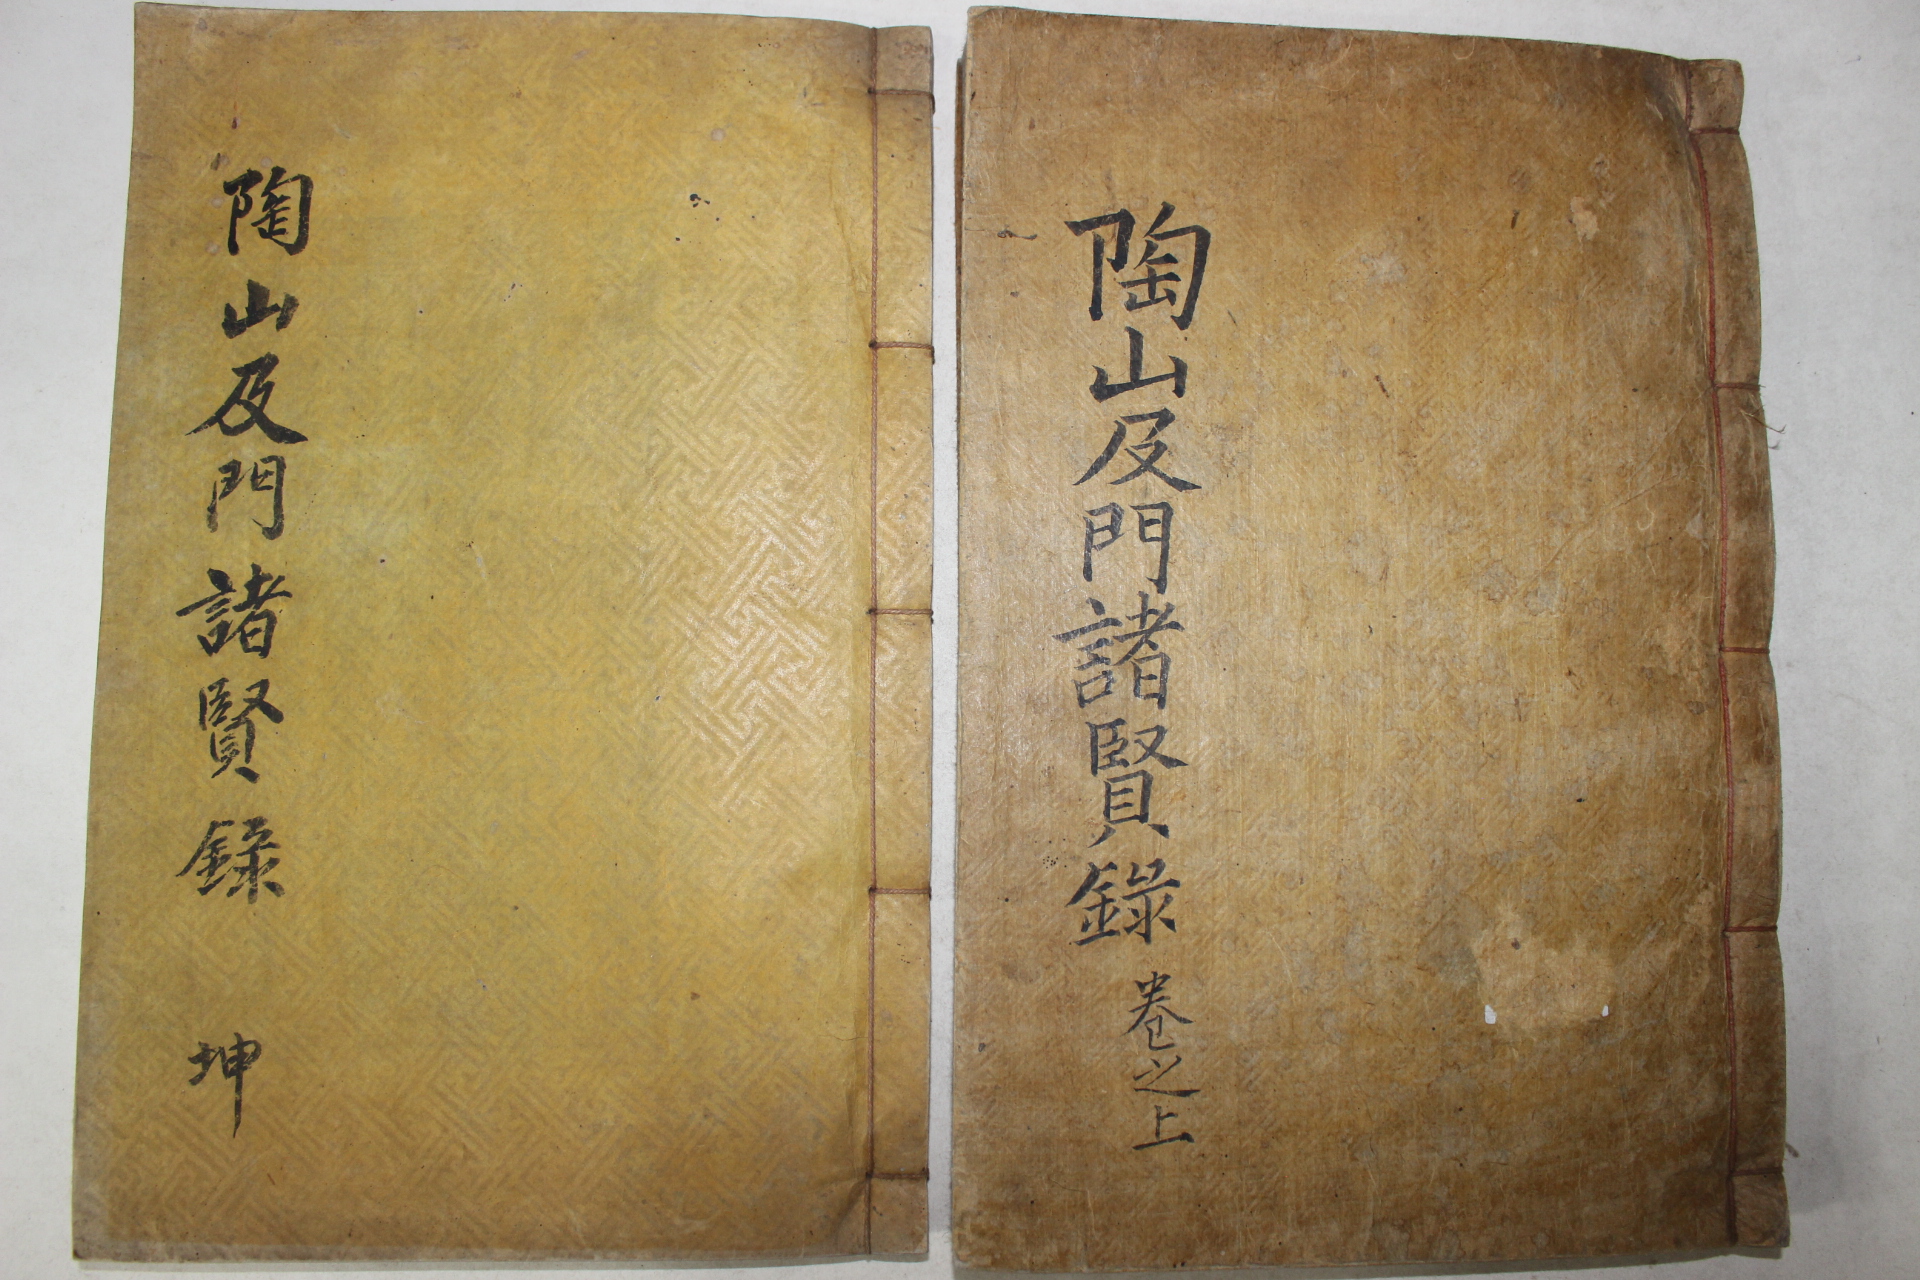 陶山及門諸賢錄 卷之上
陶山及門諸賢錄 坤